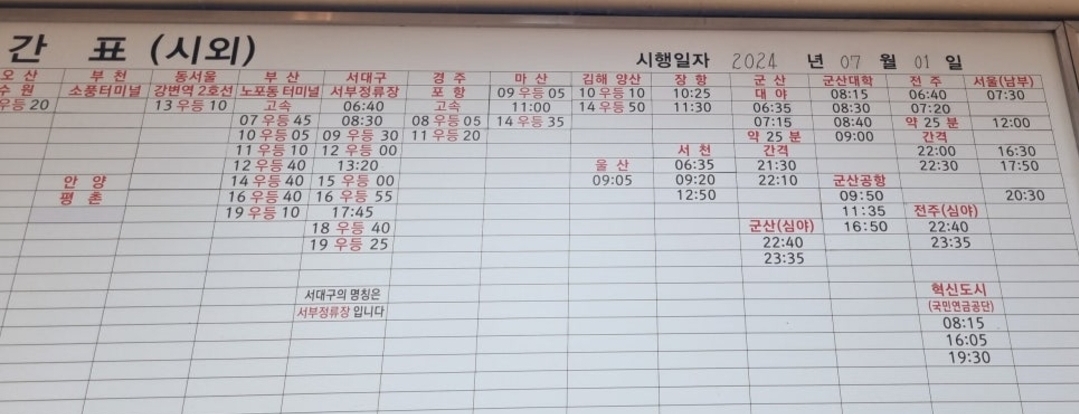 간 표 (시외)
시행일자 2024 년 07 월 01 일
오 산 부 천 동서울 부 산 서대구 경 주 마 산 김해 양산 장 항 군 산 군산대학 전 주 서울(남부)
수 원 소풍터미널 강변역 2호선 노포동 터미널 서부정류장 포 항 09 우등 05 10 우등 10 10:25 대 야 08:15 06:40 07:30
우등 20 13 우등 10 고속 06:40 고속 11:00 14 우등 50 11:30 06:35 08:30 07:20
07 우등 45 08:30 08 우등 05 14 우등 35 07:15 08:40 약 25 분 12:00
10 우등 05 09 우등 30 11 우등 20 약 25 분 09:00 간격
11 우등 10 12 우등 00 서 천 간격 22:00 16:30
12 우등 40 13:20 울 산 06:35 21:30 22:30 17:50
안 양 14 우등 40 15 우등 00 09:05 09:20 22:10 군산공항
평 촌 16 우등 40 16 우등 55 12:50 09:50 20:30
19 우등 10 17:45 11:35 전주(심야)
18 우등 40 군산(심야) 16:50 22:40
19 우등 25 22:40 23:35
23:35
서대구의 명칭은 혁신도시
서부정류장 입니다 (국민연금공단)
08:15
16:05
19:30